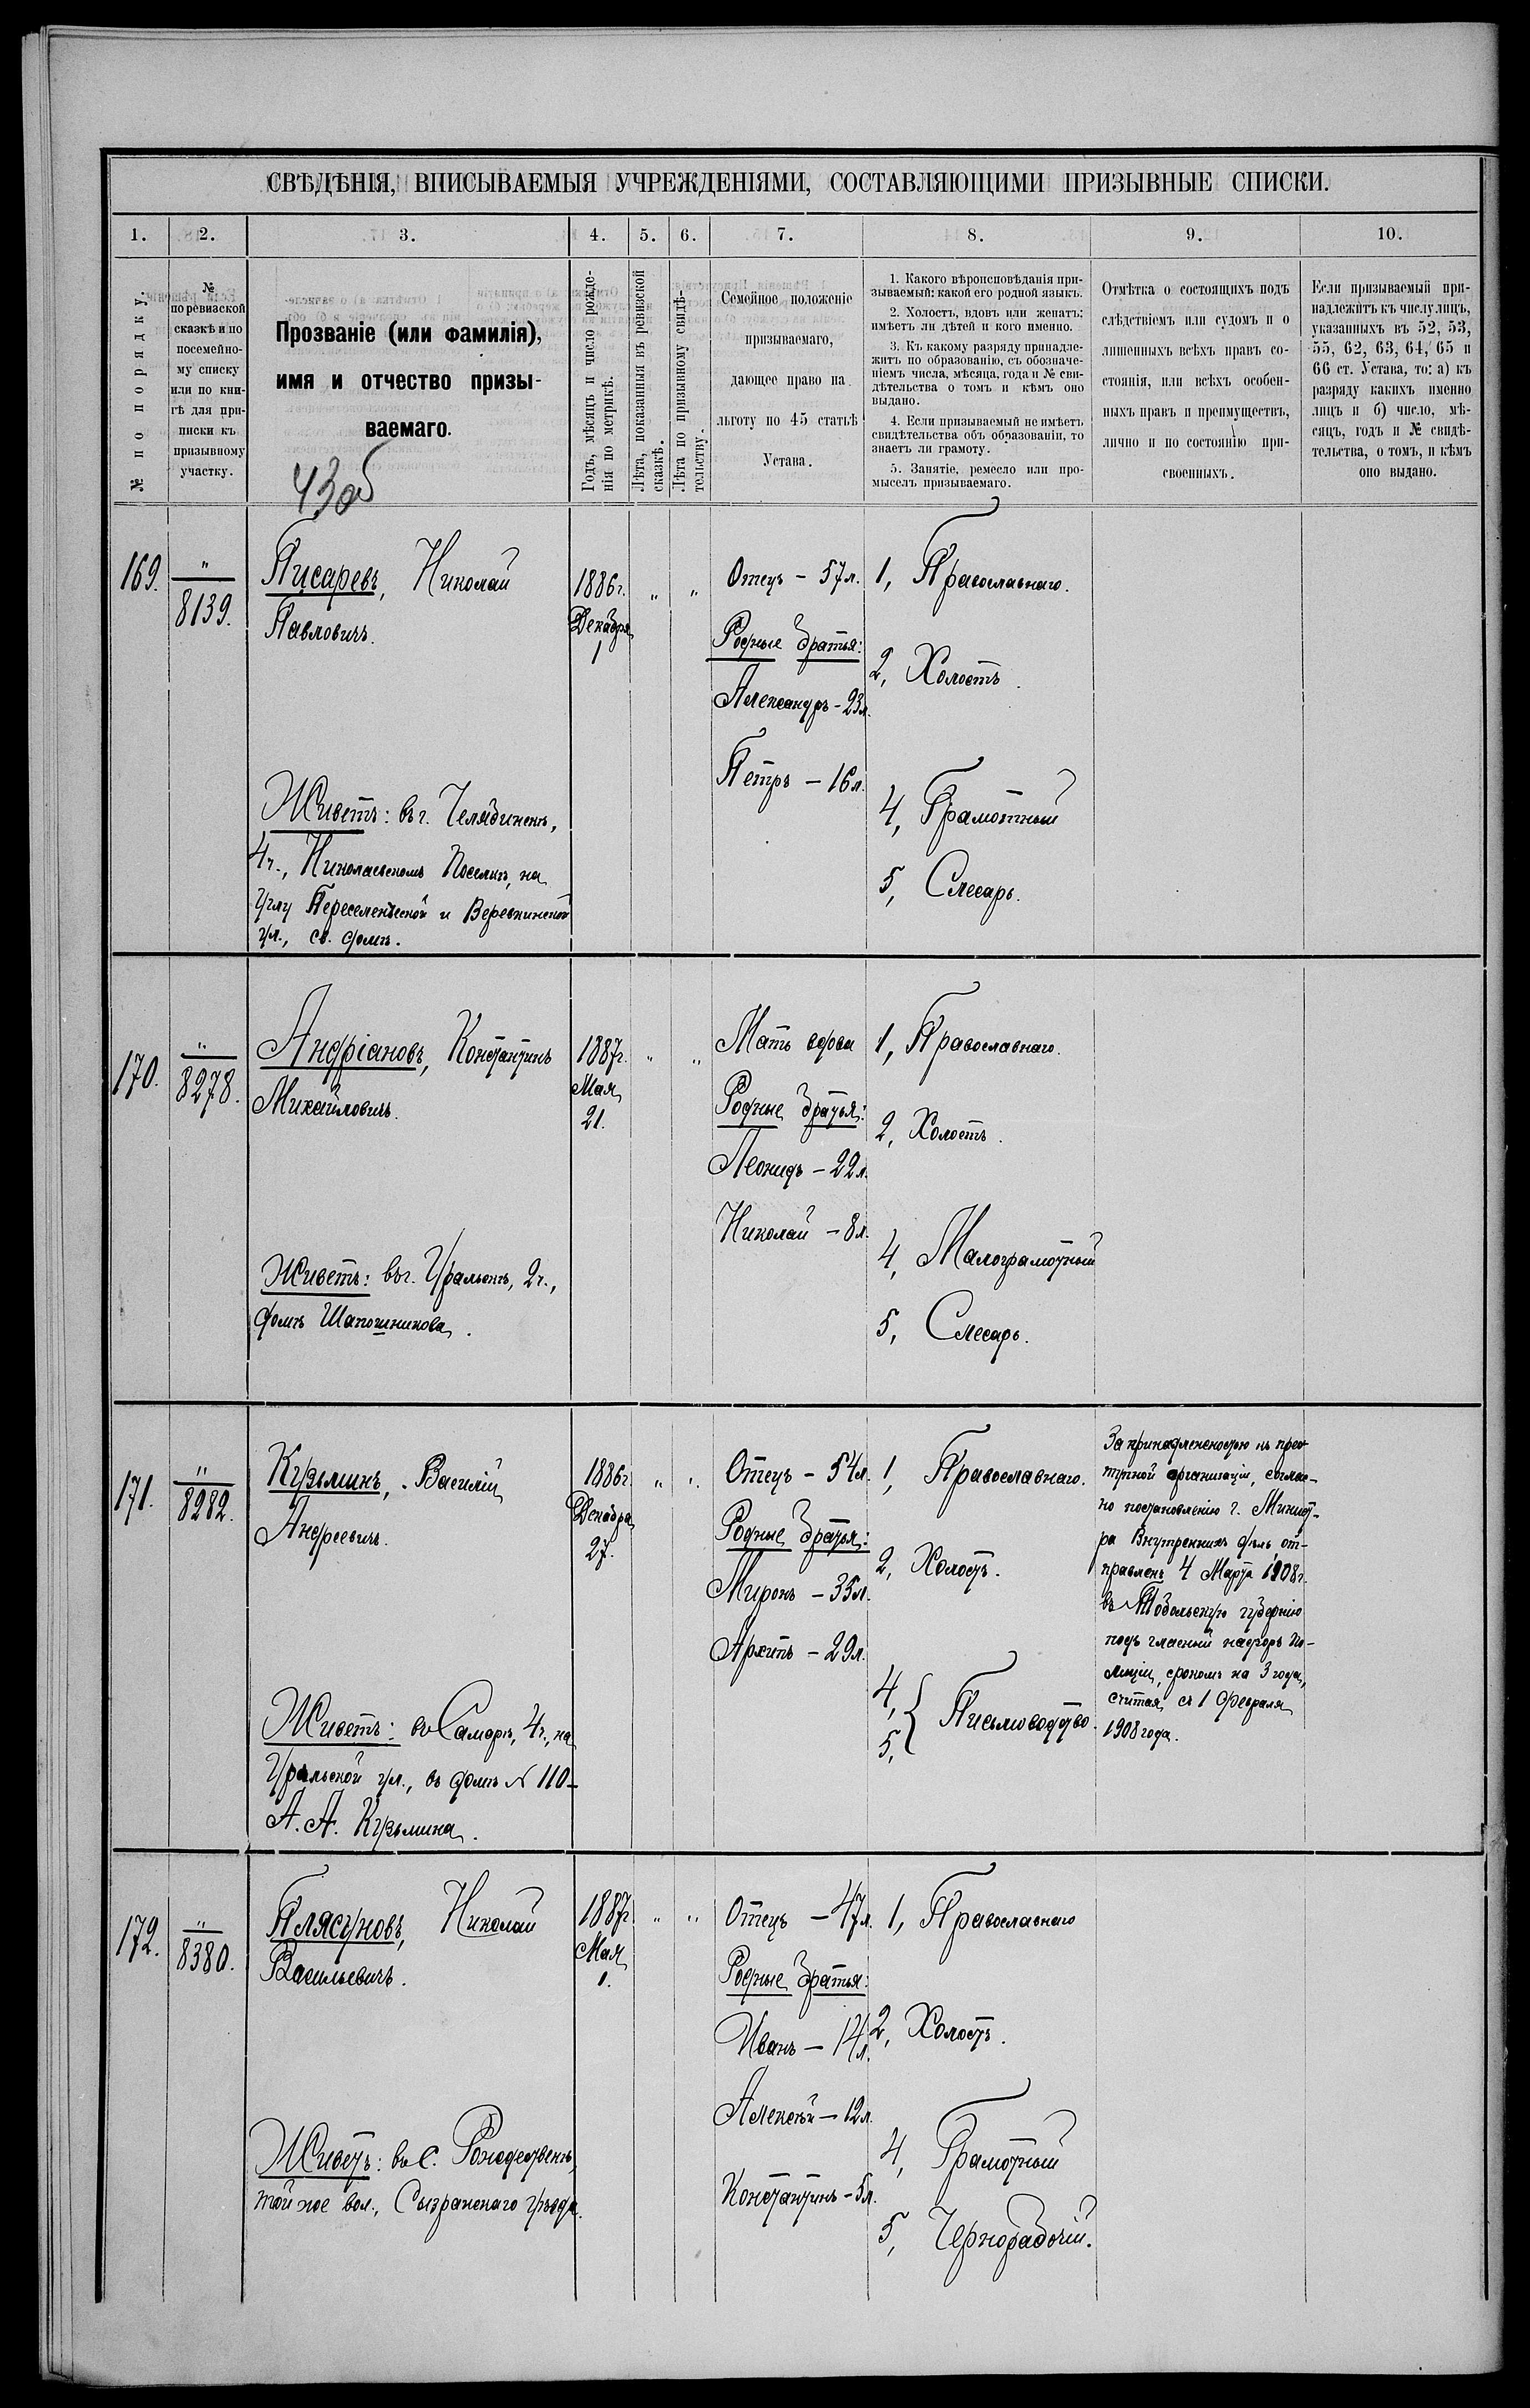 СВѢДѢНІЯ, ВПИСЫВАЕМЫЯ УЧРЕЖДЕНІЯМИ, СОСТАВЛЯЮЩИМИ ПРИЗЫВНЫЕ СПИСКИ.
1. 2. 3. 4. 5. 6. 7. 8. 9. 10.
№ по порядку.
№
по ревизской
сказкѣ и по
посемейно-
му списку
или по кни-
гѣ для при-
писки къ
призывному
участку.
Прозваніе (или фамилія),
имя и отчество призы-
ваемаго.
43об
Годъ, мѣсяцъ и число рожде-
нія по метрикѣ.
Лѣта, показанныя въ ревизской
сказкѣ.
Лѣта по призывному свидѣ-
тельству.
Семейное положеніе
призываемаго,
дающее право на
льготу по 45 статьѣ
Устава.
1. Какого вѣроисповѣданія при-
зываемый: какой его родной языкъ.
2. Холостъ, вдовъ или женатъ;
имѣетъ ли дѣтей и кого именно.
3. Къ какому разряду принадле-
житъ по образованію, съ обозначе-
ніемъ числа, мѣсяца, года и № сви-
дѣтельства о томъ и кѣмъ оно
выдано.
4. Если призываемый не имѣетъ
свидѣтельства объ образованіи, то
знаетъ ли грамоту.
5. Занятіе, ремесло или про-
мыселъ призываемаго.
Отмѣтка о состоящихъ подъ
слѣдствіемъ или судомъ и о
лишенныхъ всѣхъ правъ со-
стоянія, или всѣхъ особен-
ныхъ правъ и преимуществъ,
лично и по состоянію при-
своенныхъ.
Если призываемый при-
надлежитъ къ числу лицъ,
указанныхъ въ 52, 53,
55, 62, 63, 64, 65 и
66 ст. Устава, то: а) къ
разряду какихъ именно
лицъ и б) число, мѣ-
сяцъ, годъ и № свидѣ-
тельства, о томъ, и кѣмъ
оно выдано.
169.
"
8139.
Писаревъ, Николай
Павловичъ.
Живетъ: въ г. Челябинскѣ,
4 ч., Николаевскомъ Поселкѣ, на
углу Переселенческой и Веревкинской
ул., св. домъ.
1886 г.
Декабря
1
" "
Отецъ – 57 л.
Родные братья:
Александръ – 23 л.
Петръ – 16 л.
1, Православнаго.
2, Холостъ.
4, Грамотный
5, Слесарь.
170.
"
8278.
Андріановъ, Константинъ
Михайловичъ.
Живетъ: въ г. Уральскѣ, 2 ч.,
домъ Шапошникова.
1887 г.
Мая
21.
" "
Мать вдова
Родные братья:
Леонидъ – 22 л.
Николай – 8 л.
1, Православнаго.
2, Холостъ.
4, Малограмотный
5, Слесарь.
171.
"
8282.
Кузьминъ, Василій
Андреевичъ.
Живетъ: въ Самарѣ, 4 ч., на
Уральской ул., въ домѣ № 110 –
А. А. Кузьмина.
1886 г.
Декабря
27.
" "
Отецъ – 54 л.
Родные братья:
Миронъ – 35 л.
Архипъ – 29 л.
1, Православнаго.
2, Холостъ.
4,
5, } Письмоводство.
За принадлежностью къ прес-
тупной организаціи, соглас-
но постановленію г. Минист-
ра Внутреннихъ дѣлъ от-
правленъ 4 Марта 1908 г.
въ Тобольскую губернію
подъ гласный надзоръ по-
лиціи, срокомъ на 3 года,
считая съ 1 Февраля
1908 года.
172.
"
8380.
Плясуновъ, Николай
Васильевичъ.
Живетъ: въ с. Рождественѣ,
той же вол., Сызранскаго уѣзда.
1887 г.
Мая
1.
" "
Отецъ – 47 л.
Родные братья:
Иванъ – 14 л.
Алексѣй – 12 л.
Константинъ – 5 л.
1, Православнаго
2, Холостъ.
4, Грамотный
5, Чернорабочій.